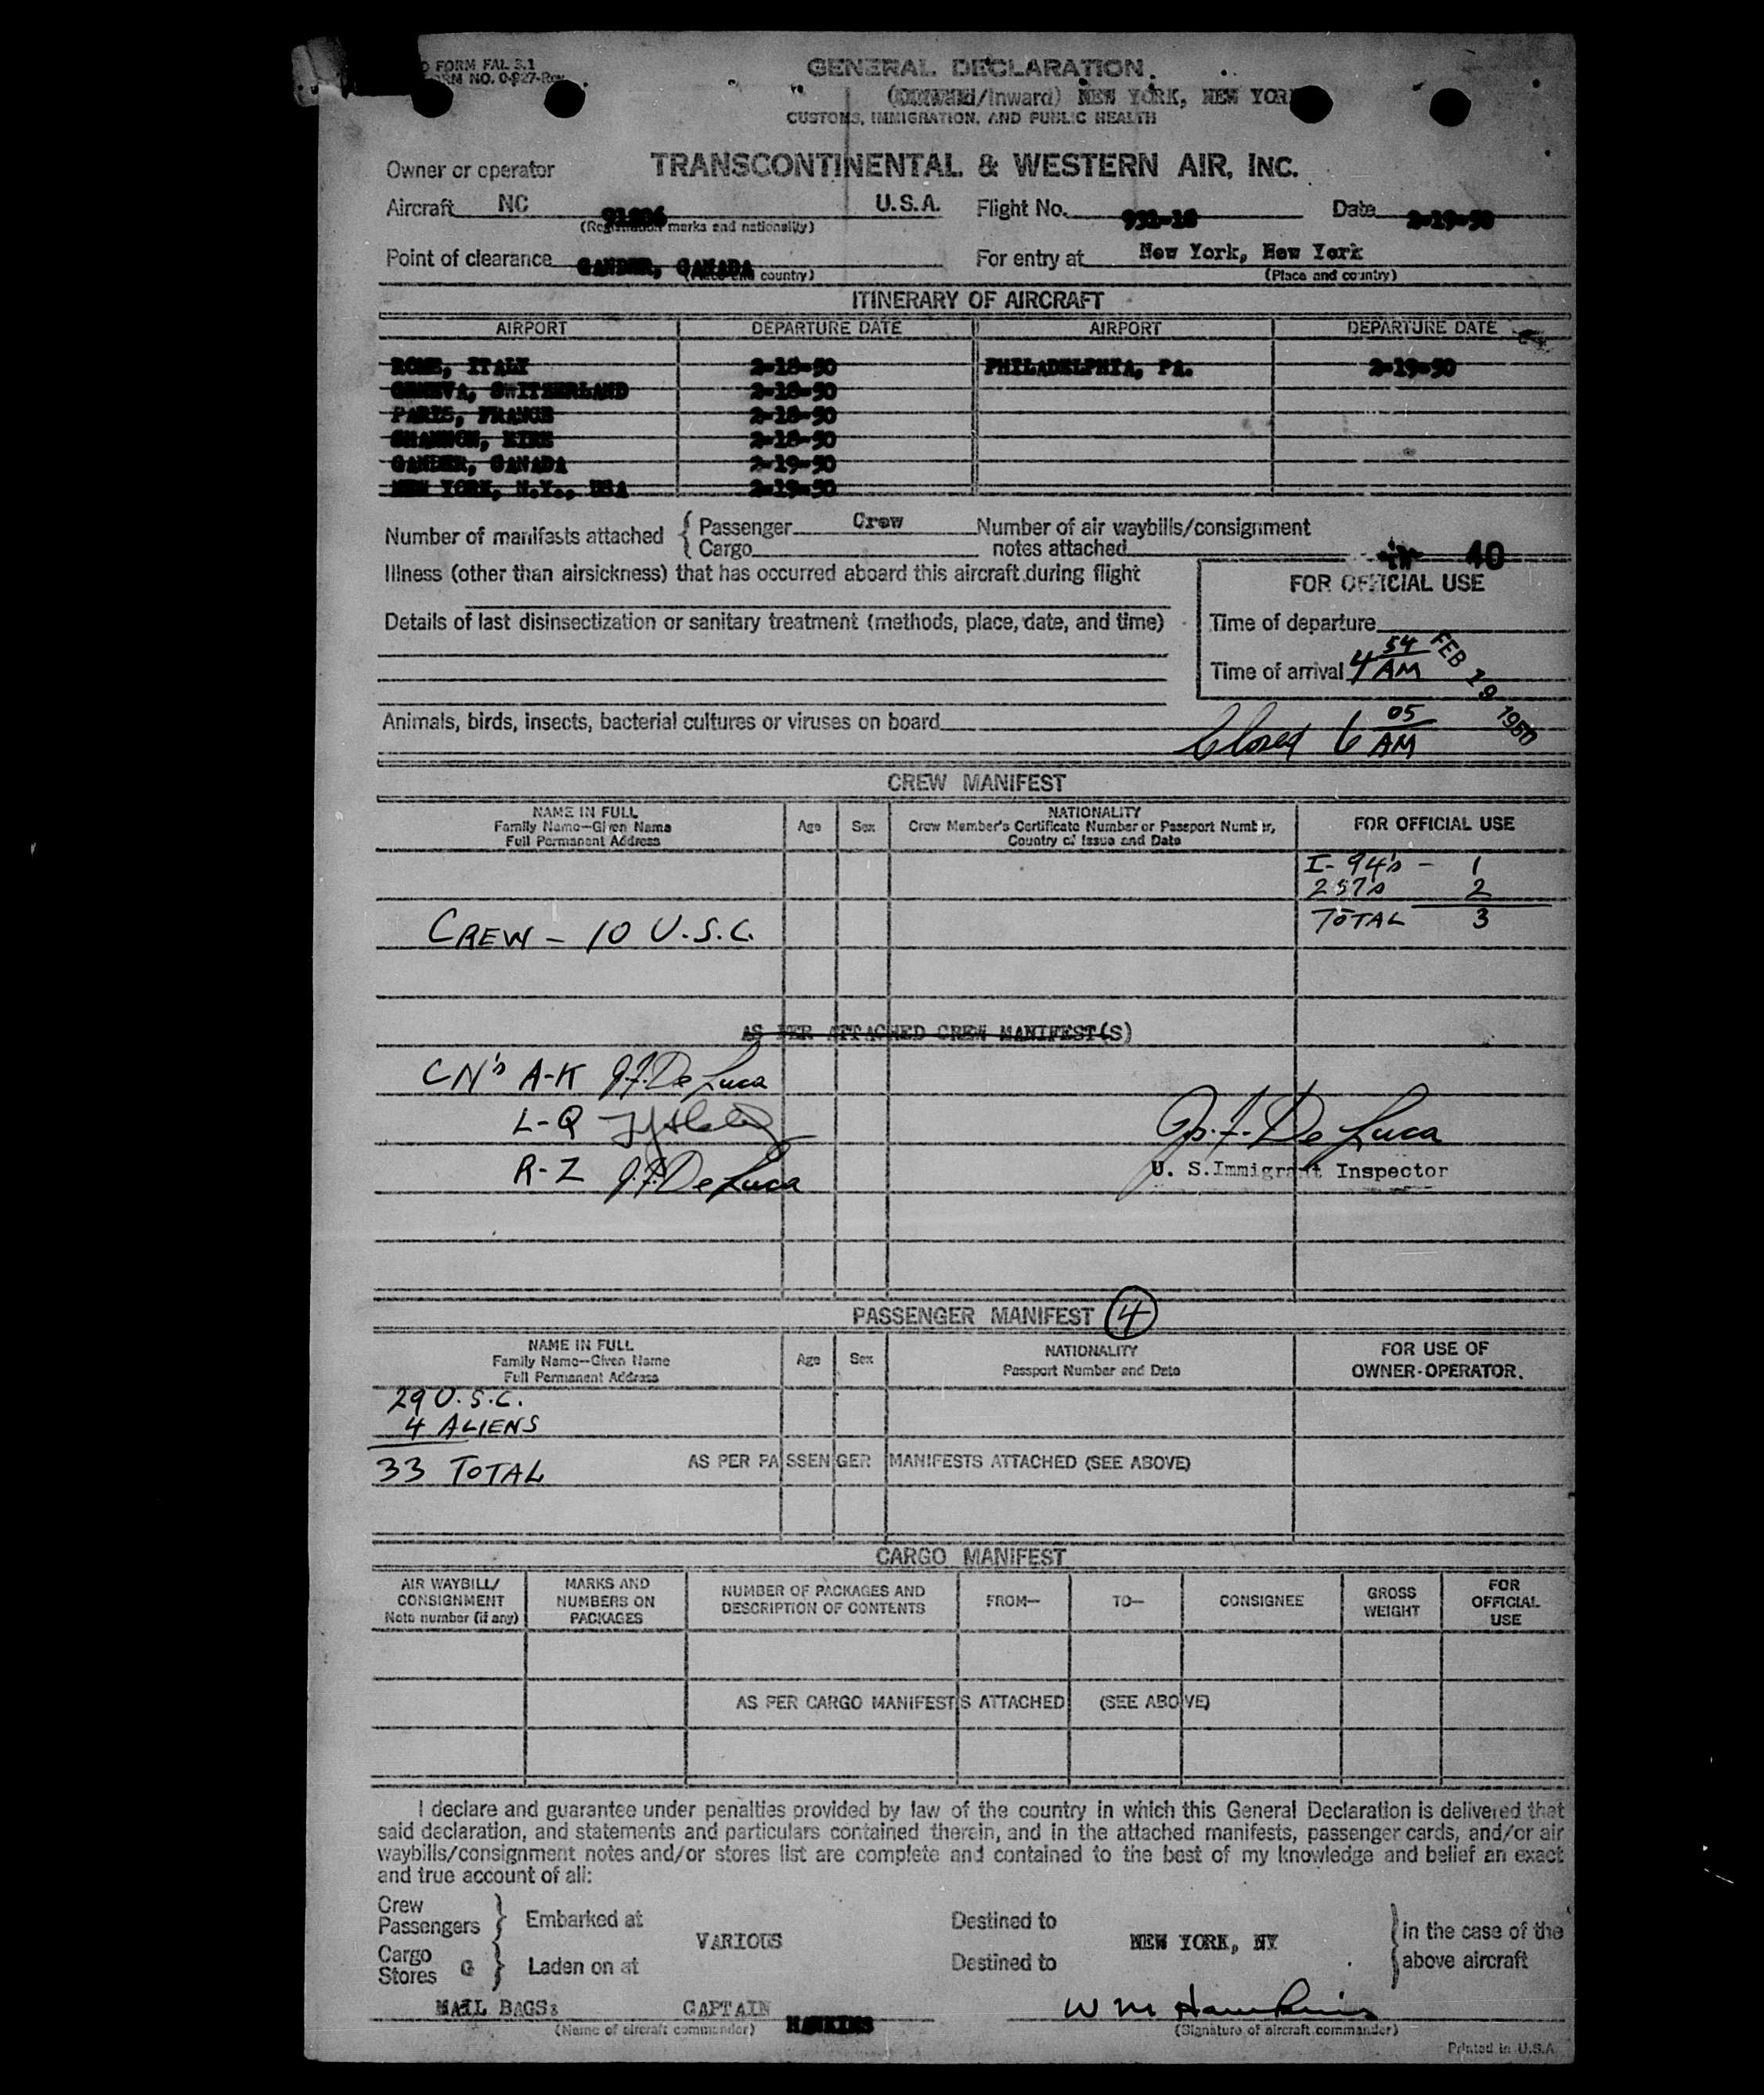 FORM FAL 3.1
GENERAL DECLARATION
FORM NO. 0-927-Rev.
(Outward/Inward) NEW YORK, NEW YORK
CUSTOMS, IMMIGRATION, AND PUBLIC HEALTH
Owner or operator TRANSCONTINENTAL & WESTERN AIR, INC.
Aircraft NC U.S.A. Flight No. 931-18 Date 2-19-50
(Registration marks and nationality)
Point of clearance GANDER, CANADA For entry at New York, New York
(Place and country) (Place and country)
ITINERARY OF AIRCRAFT
AIRPORT DEPARTURE DATE AIRPORT DEPARTURE DATE
ROME, ITALY 2-18-50 PHILADELPHIA, PA. 2-19-50
GENEVA, SWITZERLAND 2-18-50
PARIS, FRANCE 2-18-50
SHANNON, EIRE 2-18-50
GANDER, CANADA 2-19-50
NEW YORK, N.Y., USA 2-19-50
Number of manifests attached { Passenger Crew Number of air waybills/consignment
Cargo notes attached 40
Illness (other than airsickness) that has occurred aboard this aircraft during flight
FOR OFFICIAL USE
Details of last disinsectization or sanitary treatment (methods, place, date, and time)
Time of departure
Time of arrival 4 54 AM FEB 19 1950
Animals, birds, insects, bacterial cultures or viruses on board
Closed 6 05 AM
CREW MANIFEST
NAME IN FULL Age Sex NATIONALITY FOR OFFICIAL USE
Family Name—Given Name Crew Member's Certificate Number or Passport Number,
Full Permanent Address Country of Issue and Date
I-94's - 1
257's 2
TOTAL 3
CREW - 10 U.S.C.
AS PER ATTACHED CREW MANIFEST(S)
CN's A-K J.F. De Luca
L-Q
R-Z J.F. De Luca
Jo. F. De Luca
U. S. Immigrant Inspector
PASSENGER MANIFEST 4
NAME IN FULL Age Sex NATIONALITY FOR USE OF
Family Name—Given Name Passport Number and Date OWNER-OPERATOR.
Full Permanent Address
29 U.S.C.
4 ALIENS
33 TOTAL AS PER PASSENGER MANIFESTS ATTACHED (SEE ABOVE)
CARGO MANIFEST
AIR WAYBILL/ MARKS AND NUMBER OF PACKAGES AND FROM— TO— CONSIGNEE GROSS FOR
CONSIGNMENT NUMBERS ON DESCRIPTION OF CONTENTS WEIGHT OFFICIAL
Note number (if any) PACKAGES USE
AS PER CARGO MANIFESTS ATTACHED (SEE ABOVE)
I declare and guarantee under penalties provided by law of the country in which this General Declaration is delivered that
said declaration, and statements and particulars contained therein, and in the attached manifests, passenger cards, and/or air
waybills/consignment notes and/or stores list are complete and contained to the best of my knowledge and belief an exact
and true account of all:
Crew
Passengers } Embarked at VARIOUS Destined to NEW YORK, NY } in the case of the
Cargo
Stores G } Laden on at Destined to above aircraft
MAIL BAGS: CAPTAIN HAWKINS W M Hawkins
(Name of aircraft commander) (Signature of aircraft commander)
Printed in U.S.A.